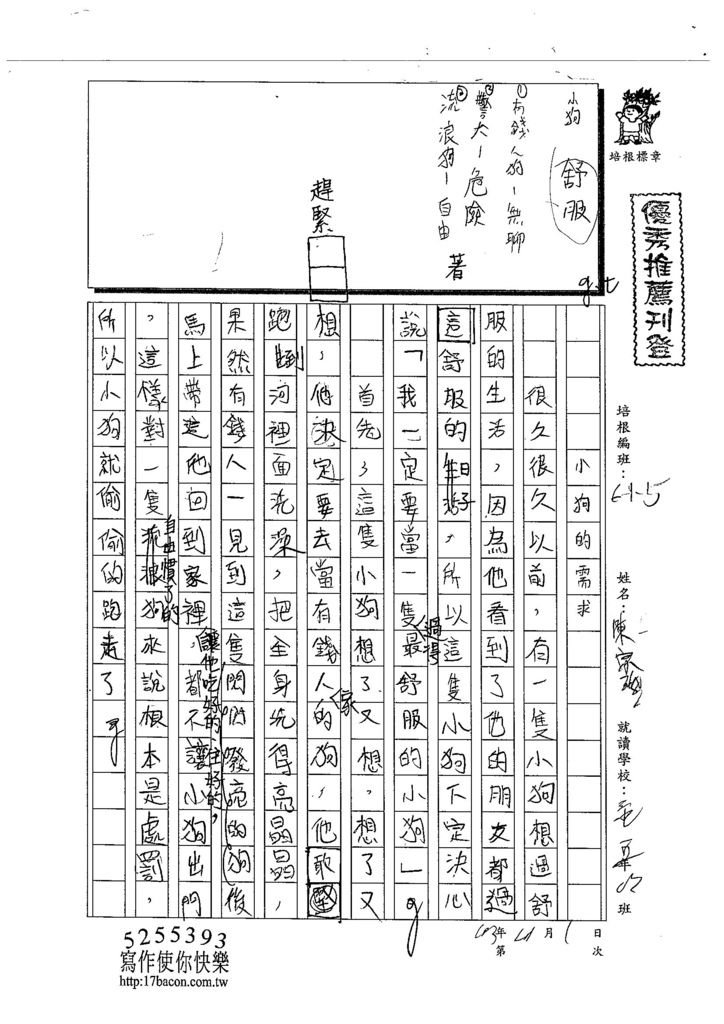 培根標章
優秀推薦刊登
培根編班：
姓名：陳
就讀學校：
班
小狗
舒服
①有錢人狗－無聊
②警犬－危險
③流浪狗－自由
著
趕緊
小狗的需求
很久很久以前，有一隻小狗想過舒
服的生活，因為他看到了他的朋友都過
這舒服的日子，所以這隻小狗下定決心
說「我一定要當一隻過得最舒服的小狗」。
首先，這隻小狗想了又想，想了又
想，他決定要去當有錢人家的狗，他
跑到河裡面洗澡，把全身洗得亮晶晶，
果然有錢人一見到這隻閃閃發亮的狗後
馬上帶進他回到家裡，讓他吃好的、住好的，都不讓小狗出門
，這樣對一隻自由慣了的流浪狗來說根本是處罰，
所以小狗就偷偷的跑走了。
年
月
日
第
次
5255393
寫作使你快樂
http:17bacon.com.tw